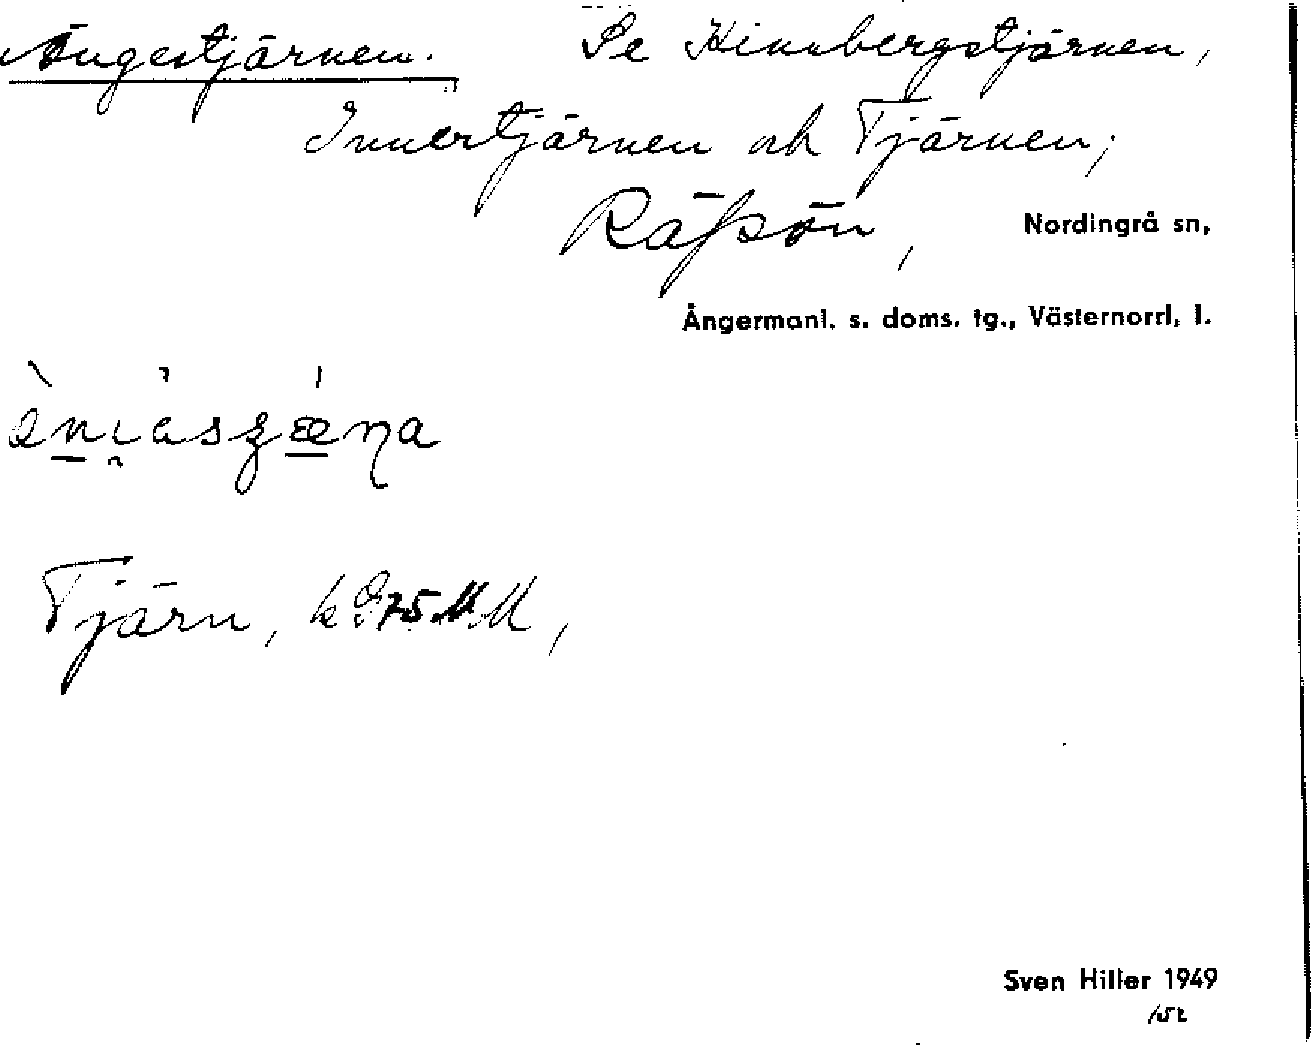 Ängestjärnen. Se Kinnbergstjärnen,
Innertjärnen och Tjärnen;
Räfsön, Nordingrå sn,
Ångermanl. s. doms. tg., Västernorrl. l.
Tjärn,
Sven Hiller 1949